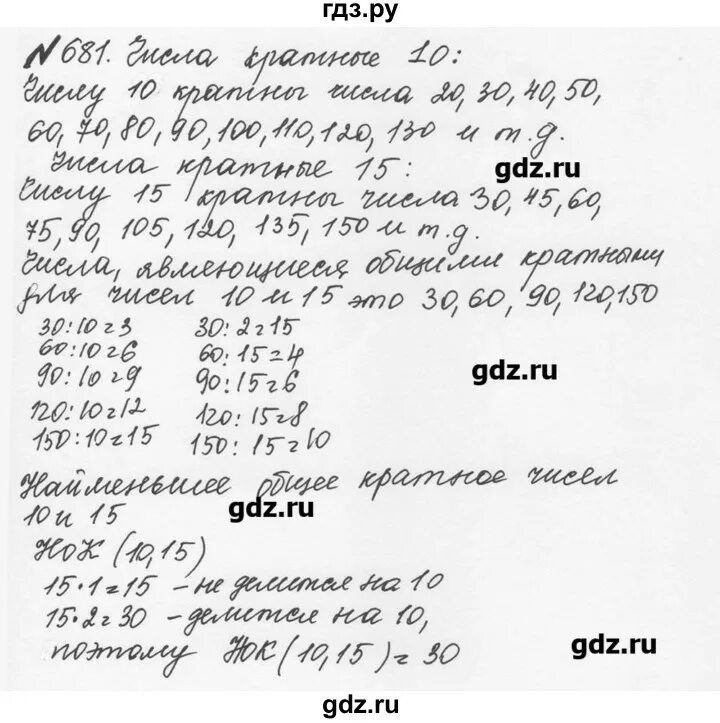 гдз.ру
№681. Числа кратные 10:
Числу 10 кратны числа 20, 30, 40, 50,
60, 70, 80, 90, 100, 110, 120, 130 и т.д.
Числа кратные 15:
gdz.ru
Числу 15 кратны числа 30, 45, 60,
75, 90, 105, 120, 135, 150 и т.д.
Числа, являющиеся общими кратными
для чисел 10 и 15 это 30, 60, 90, 120, 150
30:10=3 30:2=15
60:10=6 60:15=4
90:10=9 90:15=6
gdz.ru
120:10=12 120:15=8
150:10=15 150:15=10
Найменьшее общее кратное чисел
10 и 15
gdz.ru
НОК (10,15)
15·1=15 – не делится на 10
15·2=30 – делится на 10,
поэтому НОК (10,15) = 30
gdz.ru
gdz.ru